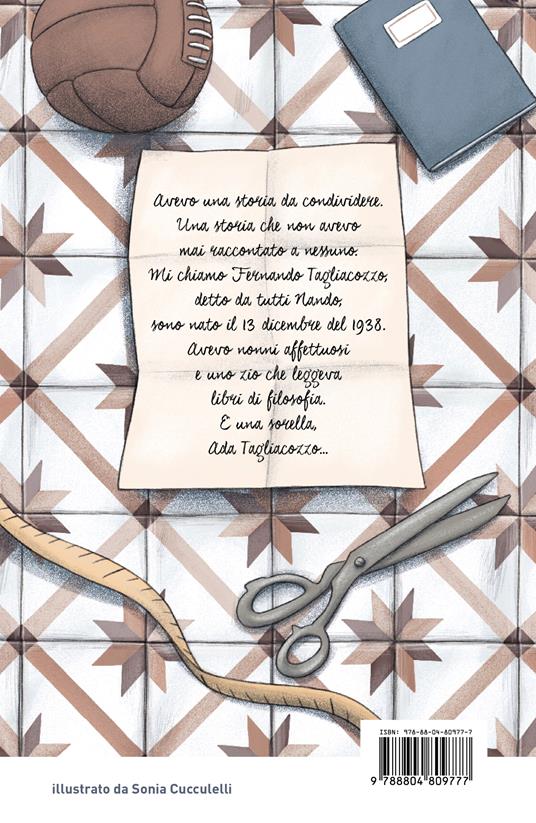 Avevo una storia da condividere.
Una storia che non avevo
mai raccontato a nessuno.
Mi chiamo Fernando Tagliacozzo,
detto da tutti Nando,
sono nato il 13 dicembre del 1938.
Avevo nonni affettuosi
e uno zio che leggeva
libri di filosofia.
E una sorella,
Ada Tagliacozzo...
ISBN: 978-88-04-80977-7
9 788804 809777
illustrato da Sonia Cucculelli